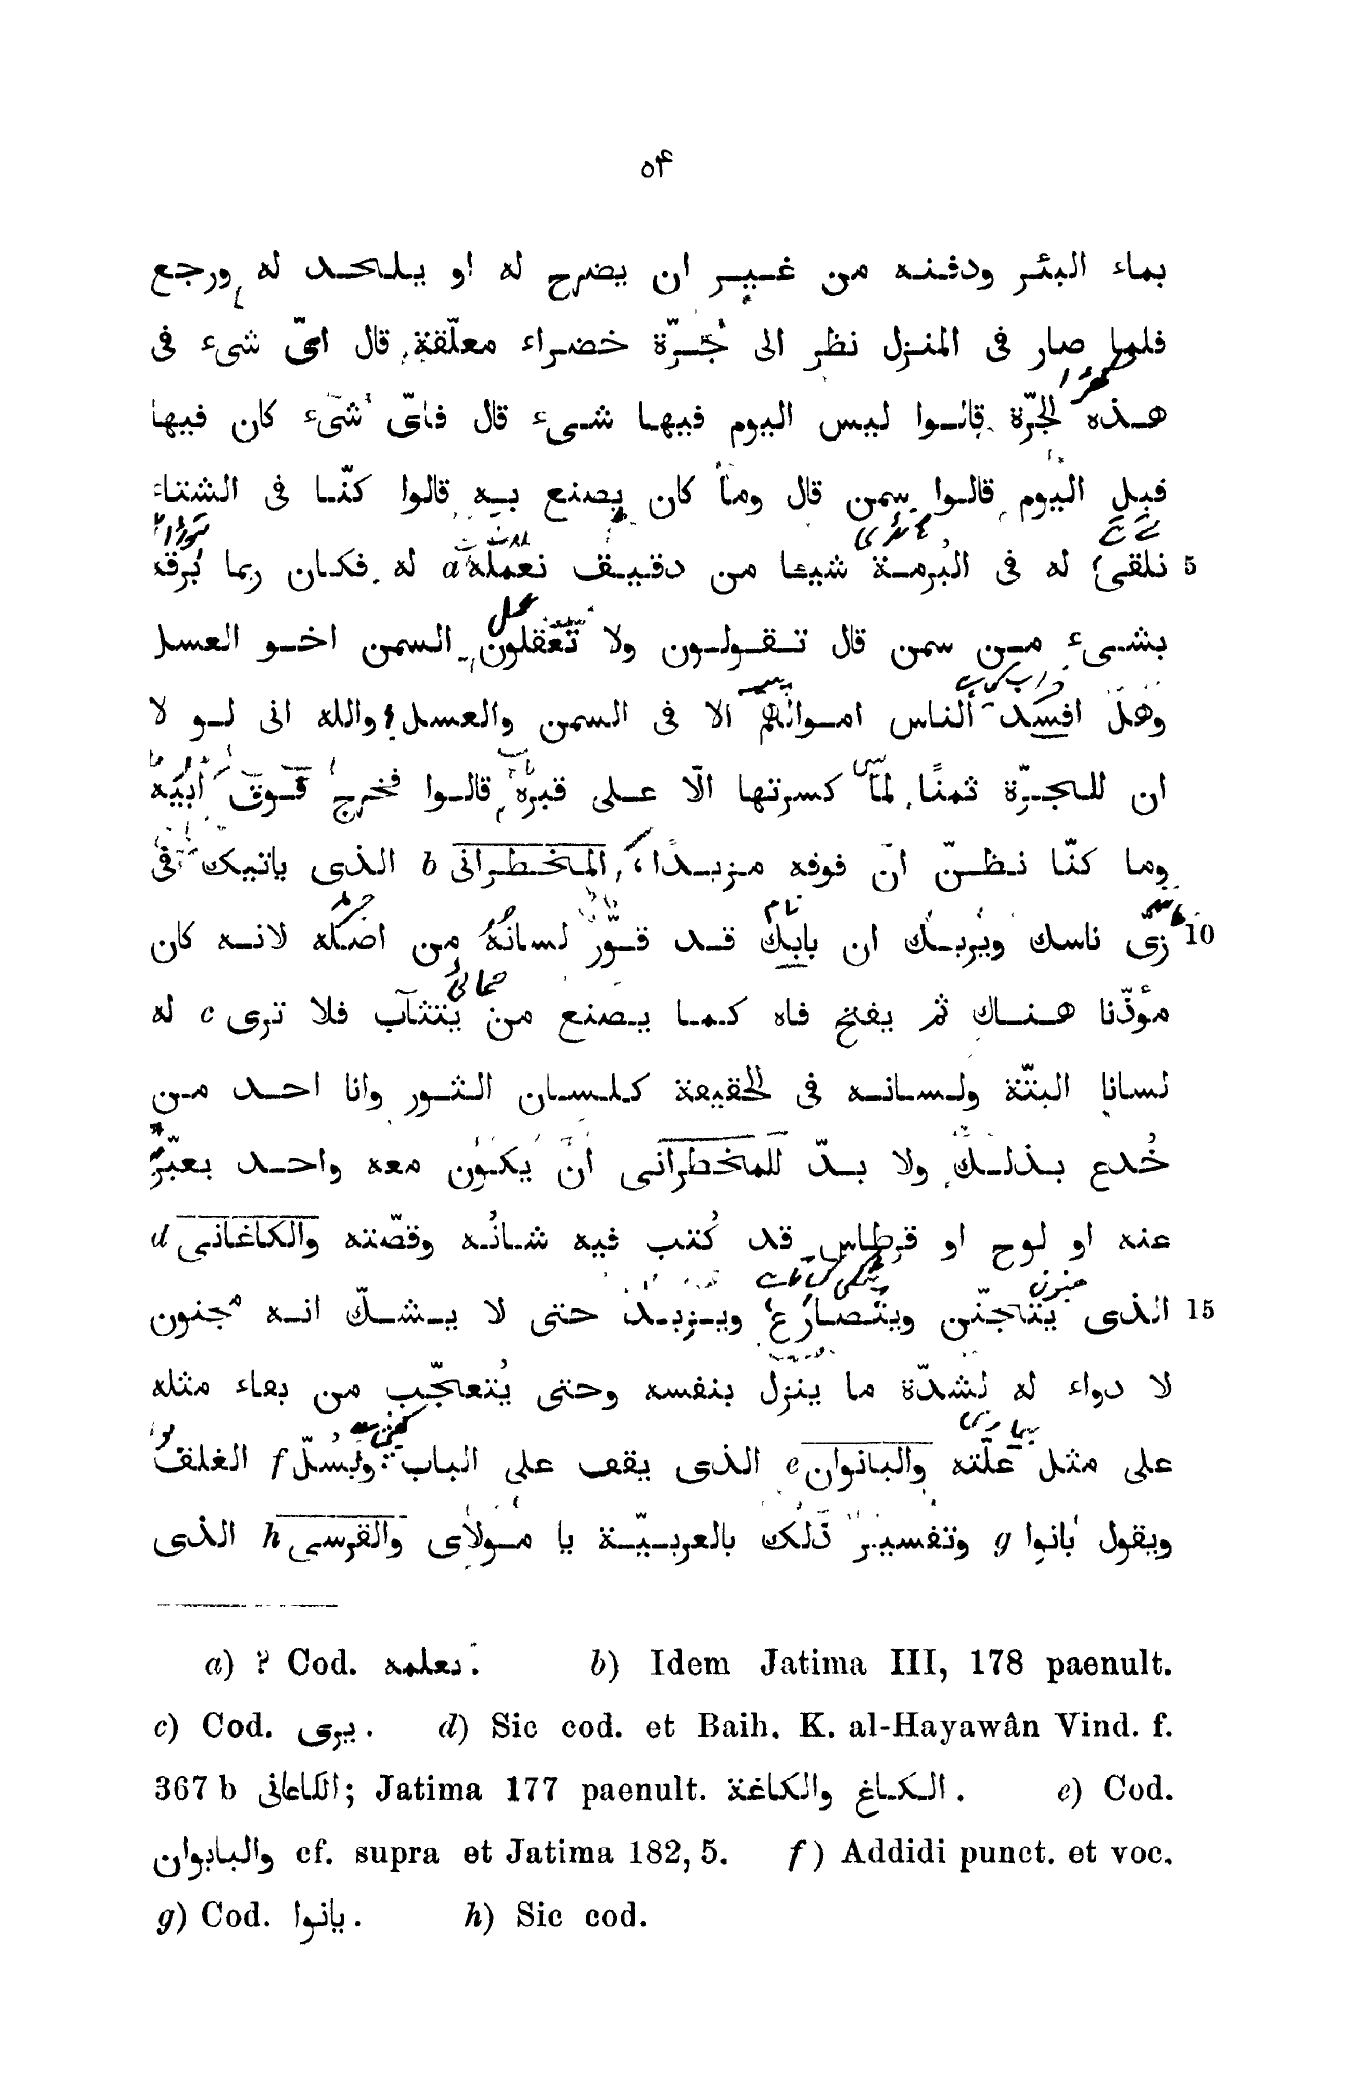 ٥۴
بماء البئر ودفنه من غير ان يضرح له او يلحد له ورجع
فلما صار فى المنزل نظر الى جَرّة خضراء معلّقة قال اىّ شىء فى
هذه الجرّة قالوا ليس اليوم فيها شىء قال فاىّ شىء كان فيها
قبل اليوم قالوا سمن قال وما كان يصنع به قالوا كنّا فى الشتاء
نلقى له فى البُرمة شيئا من دقيق نعمله a له فكان ربما بَرقه 5
بشىء من سمن قال تقولون ولا تَعقلون السمن اخو العسل
وهل افسد الناس اموالهم الا فى السمن والعسل والله انى لو لا
ان للجرّة ثمنًا لما كسرتها الّا على قبره قالوا فخرج فوق ابيه
وما كنّا نظنّ انّ فوقه مزيدًا، المخطرانى b الذى ياتيك فى
زى ناسك ويُريك ان بابك قد قوّر لسانَهُ من اصله لانه كان 10
مؤذّنا هناك ثم يفتح فاه كما يصنع من يتثآب فلا ترى c له
لسانا البتّة ولسانه فى الحقيقة كلسان الثور وانا احد من
خُدع بذلك ولا بدّ للمخطرانى ان يكون معه واحد يعبّر
عنه او لوح او قرطاس قد كُتب فيه شانُه وقصّته والكاغانى d
الذى يتجنّن ويتصارع ويزبد حتى لا يشكّ انه مجنون 15
لا دواء له لشدّة ما ينزل بنفسه وحتى يُتعجّب من بقاء مثله
على مثل علّته والبانوان e الذى يقف على الباب ويَسُلّ f الغلق
ويقول بانوا g وتفسير ذلك بالعربيّة يا مولاى والقرسى h الذى
a) ? Cod. نعلمه. b) Idem Jatima III, 178 paenult.
c) Cod. يرى. d) Sic cod. et Baih. K. al-Hayawân Vind. f.
367 b الكاعانى; Jatima 177 paenult. الكاغ والكاغة. e) Cod.
والبابوان cf. supra et Jatima 182, 5. f) Addidi punct. et voc.
g) Cod. يانوا. h) Sic cod.